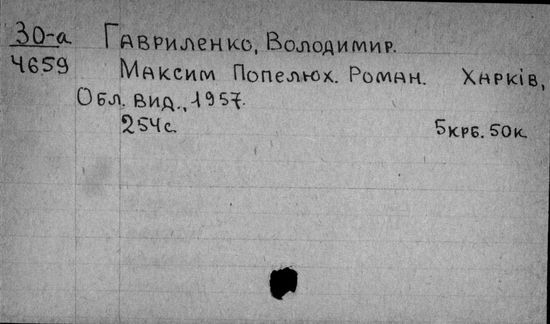 30-а Гавриленко, Володимир.
4659 Максим Попелюх. Роман. Харків,
Обл. вид., 1957.
254с. 5крб. 50к.